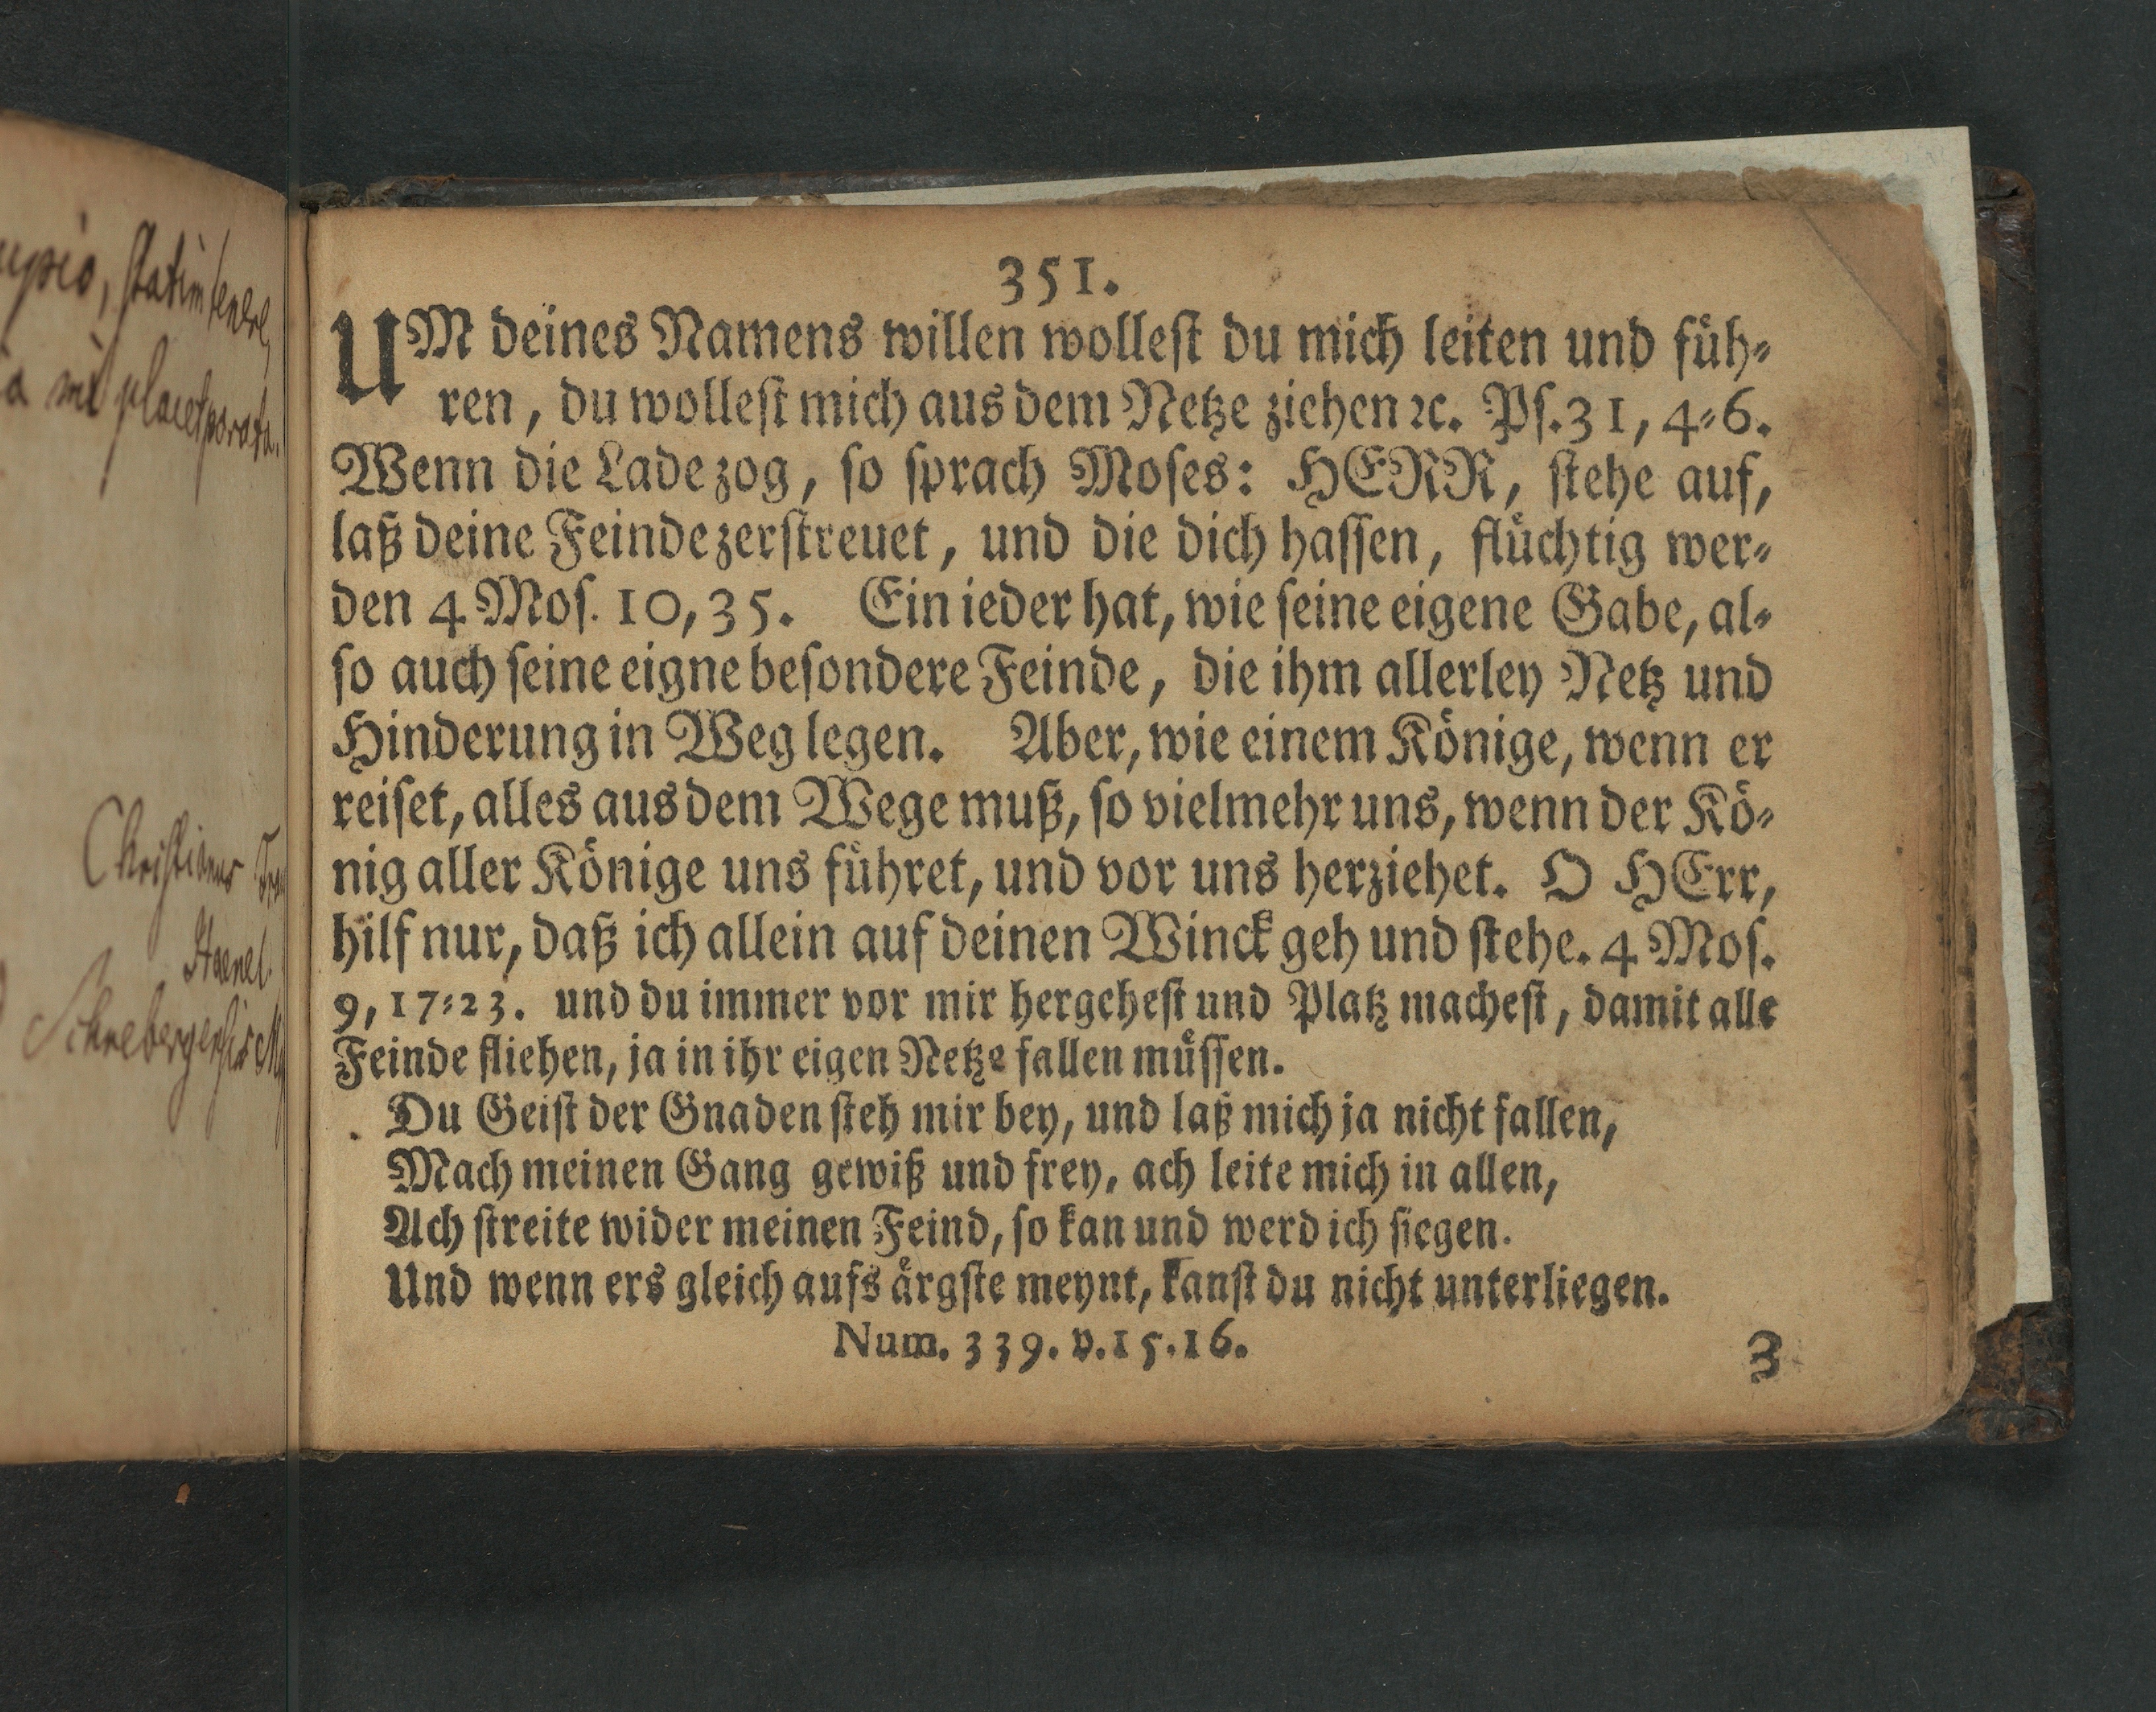 351.
UM deines Namens willen wollest du mich leiten und füh⸗
ren, du wollest mich aus dem Netze ziehen ꝛc. Ps. 31, 4⸗6.
Wenn die Lade zog, so sprach Moses: HERR, stehe auf,
laß deine Feinde zerstreuet, und die dich hassen, flüchtig wer⸗
den 4 Mos. 10, 35. Ein ieder hat, wie seine eigene Gabe, al⸗
so auch seine eigne besondere Feinde, die ihm allerley Netz und
Hinderung in Weg legen. Aber, wie einem Könige, wenn er
reiset, alles aus dem Wege muß, so vielmehr uns, wenn der Kö⸗
nig aller Könige uns führet, und vor uns herziehet. O HErr,
hilf nur, daß ich allein auf deinen Winck geh und stehe. 4 Mos.
9, 17⸗23. und du immer vor mir hergehest und Platz machest, damit alle
Feinde fliehen, ja in ihr eigen Netze fallen müssen.
Du Geist der Gnaden steh mir bey, und laß mich ja nicht fallen,
Mach meinen Gang gewiß und frey, ach leite mich in allen,
Ach streite wider meinen Feind, so kan und werd ich siegen.
Und wenn ers gleich aufs ärgste meynt, kanst du nicht unterliegen.
Num. 339. v. 15. 16.
3
statim
placet
Christianus
Haenel.